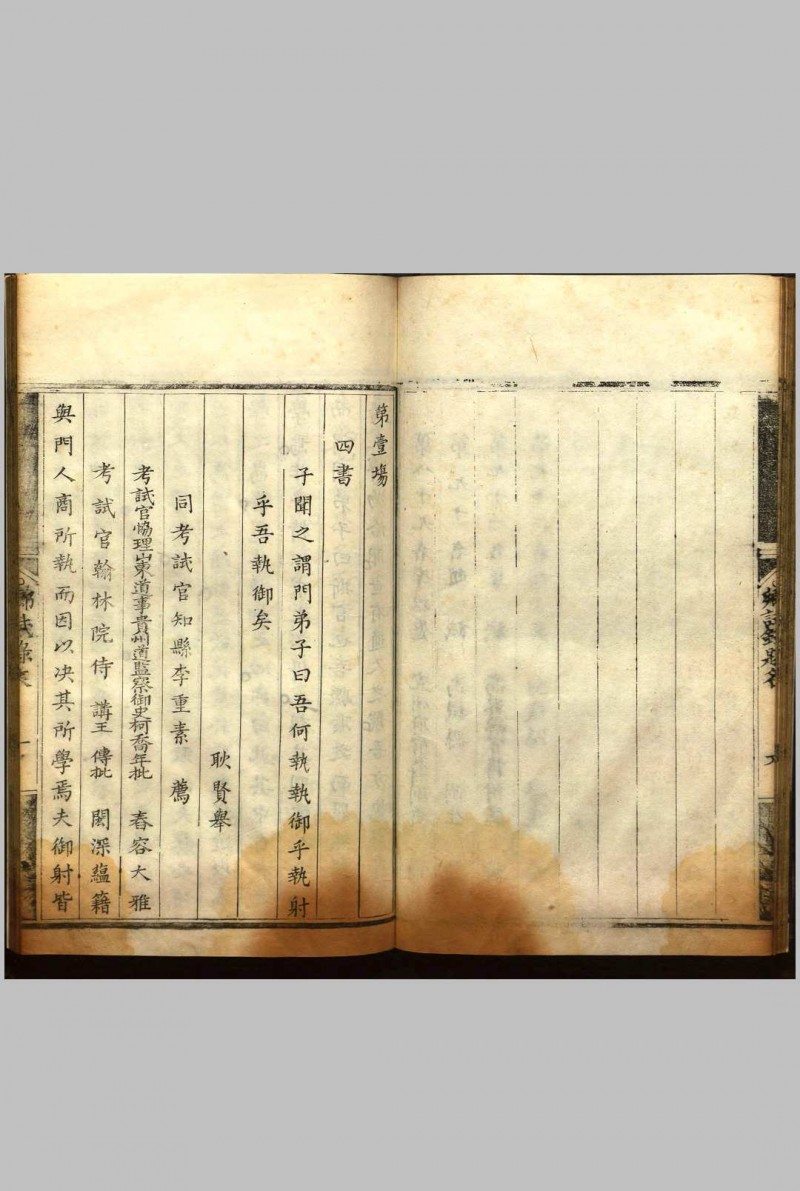 第壹場
四書
子聞之謂門弟子曰吾何執執御乎執射
乎吾執御矣
耿賢舉
同考試官知縣李重素薦
考試官協理山東道事貴州道監察御史柯喬年批 春容大雅
考試官翰林院侍講王傳批 閎深蘊籍
與門人商所執而因以决其所學焉夫御射皆
鄉試錄